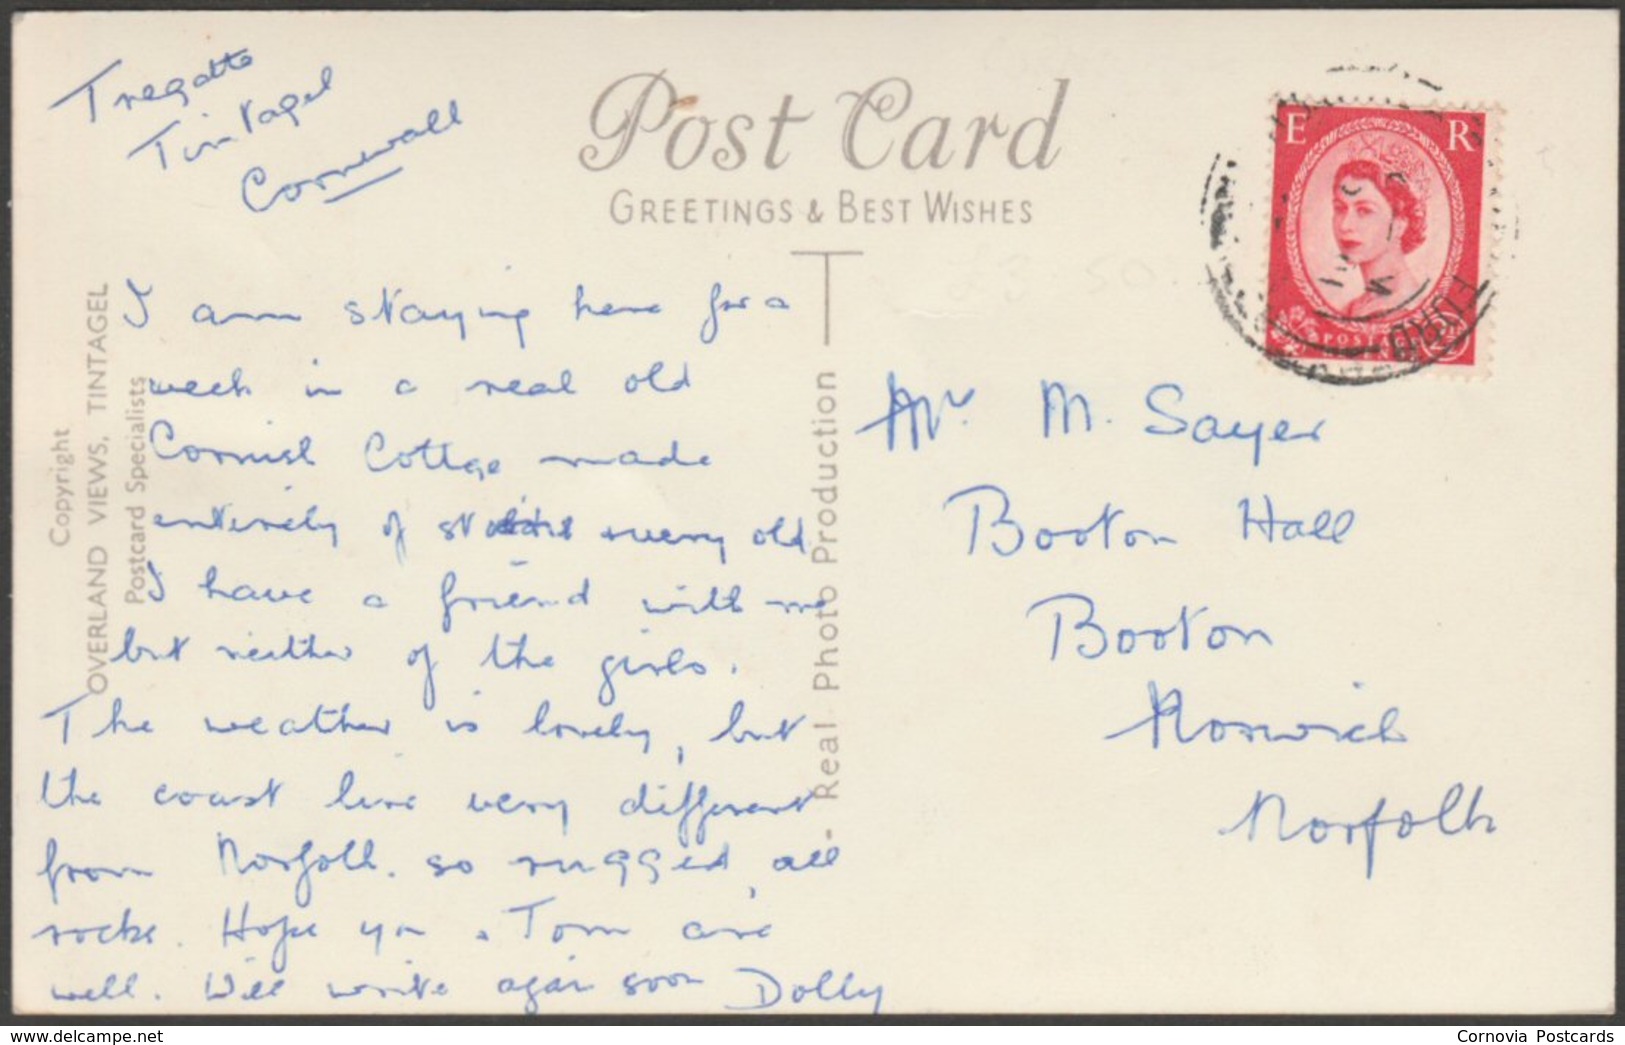 Tregatta
Tintagel
Cornwall
Post Card
GREETINGS & BEST WISHES
E R
POST
FORD
Copyright
OVERLAND VIEWS, TINTAGEL
Postcard Specialists
- Real Photo Production
I am staying here for a
week in a real old
Cornish Cottge made
entirely of very old
I have a friend with me
but neither of the girls.
The weather is lovely, but
the coast line very different
from Norfolk. so rugged, all
rocks. Hope you & Tom are
well. Will write again soon Dolly
Mr M. Sayer
Booton Hall
Booton
Norwich
Norfolk
delcampe.net
Cornovia Postcards